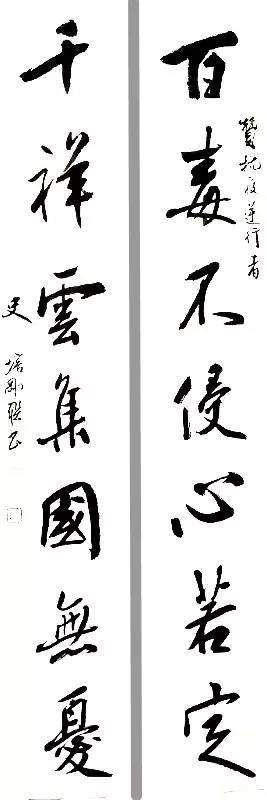 百毒不侵心若定
赞抗疫逆行者
千祥雲集國無憂
史培刚联书